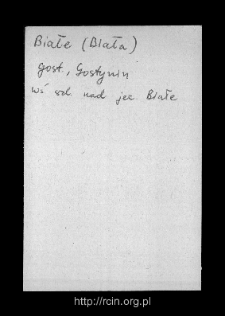 Białe (Biała)
gost., Gostynin
wś szl. nad jez. Białe
http://rcin.org.pl